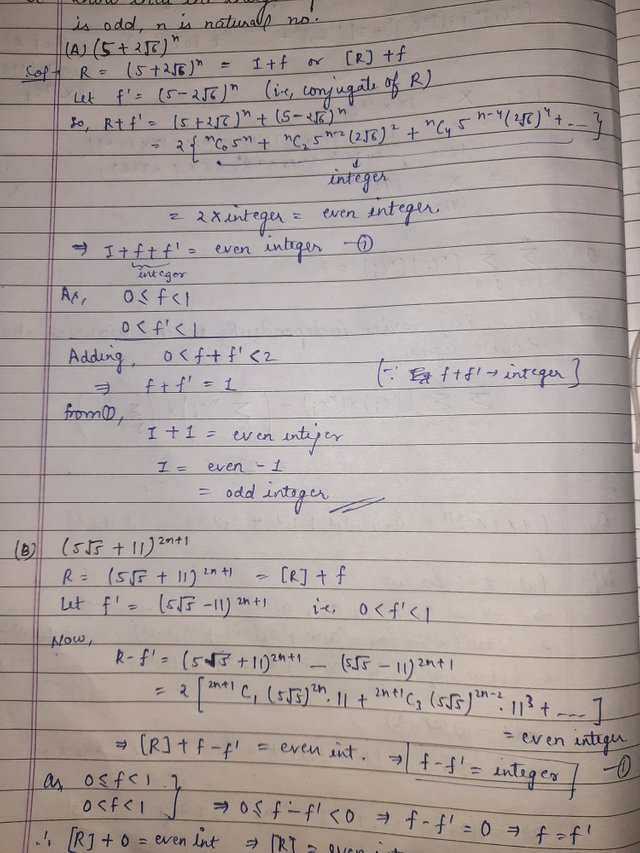 is odd, n is natural no.
(A) (5+2√6)ⁿ
Solⁿ→ R = (5+2√6)ⁿ = I+f or [R]+f
Let f' = (5-2√6)ⁿ (i.e, conjugate of R)
So, R+f' = (5+2√6)ⁿ + (5-2√6)ⁿ
= 2{ ⁿC₀ 5ⁿ + ⁿC₂ 5ⁿ⁻²(2√6)² + ⁿC₄ 5ⁿ⁻⁴(2√6)⁴ + ---- }
↓
integer
= 2 x integer = even integer.
⇒ I+f+f' = even integer —①
integer
As, 0 ≤ f < 1
0 < f' < 1
Adding, 0 < f+f' < 2
⇒ f+f' = 1 [∵ f+f' → integer]
from①,
I + 1 = even integer
I = even - 1
= odd integer
(B) (5√5 + 11)²ⁿ⁺¹
R = (5√5 + 11)²ⁿ⁺¹ = [R] + f
Let f' = (5√5 - 11)²ⁿ⁺¹ i.e, 0 < f' < 1
Now,
R-f' = (5√5 + 11)²ⁿ⁺¹ - (5√5 - 11)²ⁿ⁺¹
= 2 [ ²ⁿ⁺¹C₁ (5√5)²ⁿ. 11 + ²ⁿ⁺¹C₃ (5√5)²ⁿ⁻². 11³ + ---- ]
= even integer
⇒ [R] + f - f' = even int. ⇒ f - f' = integer —①
As 0 ≤ f < 1
0 < f < 1 } ⇒ 0 ≤ f - f' < 0 ⇒ f - f' = 0 ⇒ f = f'
∴ [R] + 0 = even int ⇒ [R] = even int